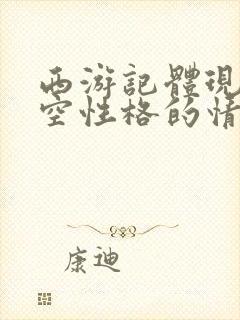 西游記體現
空性格的情
康迪